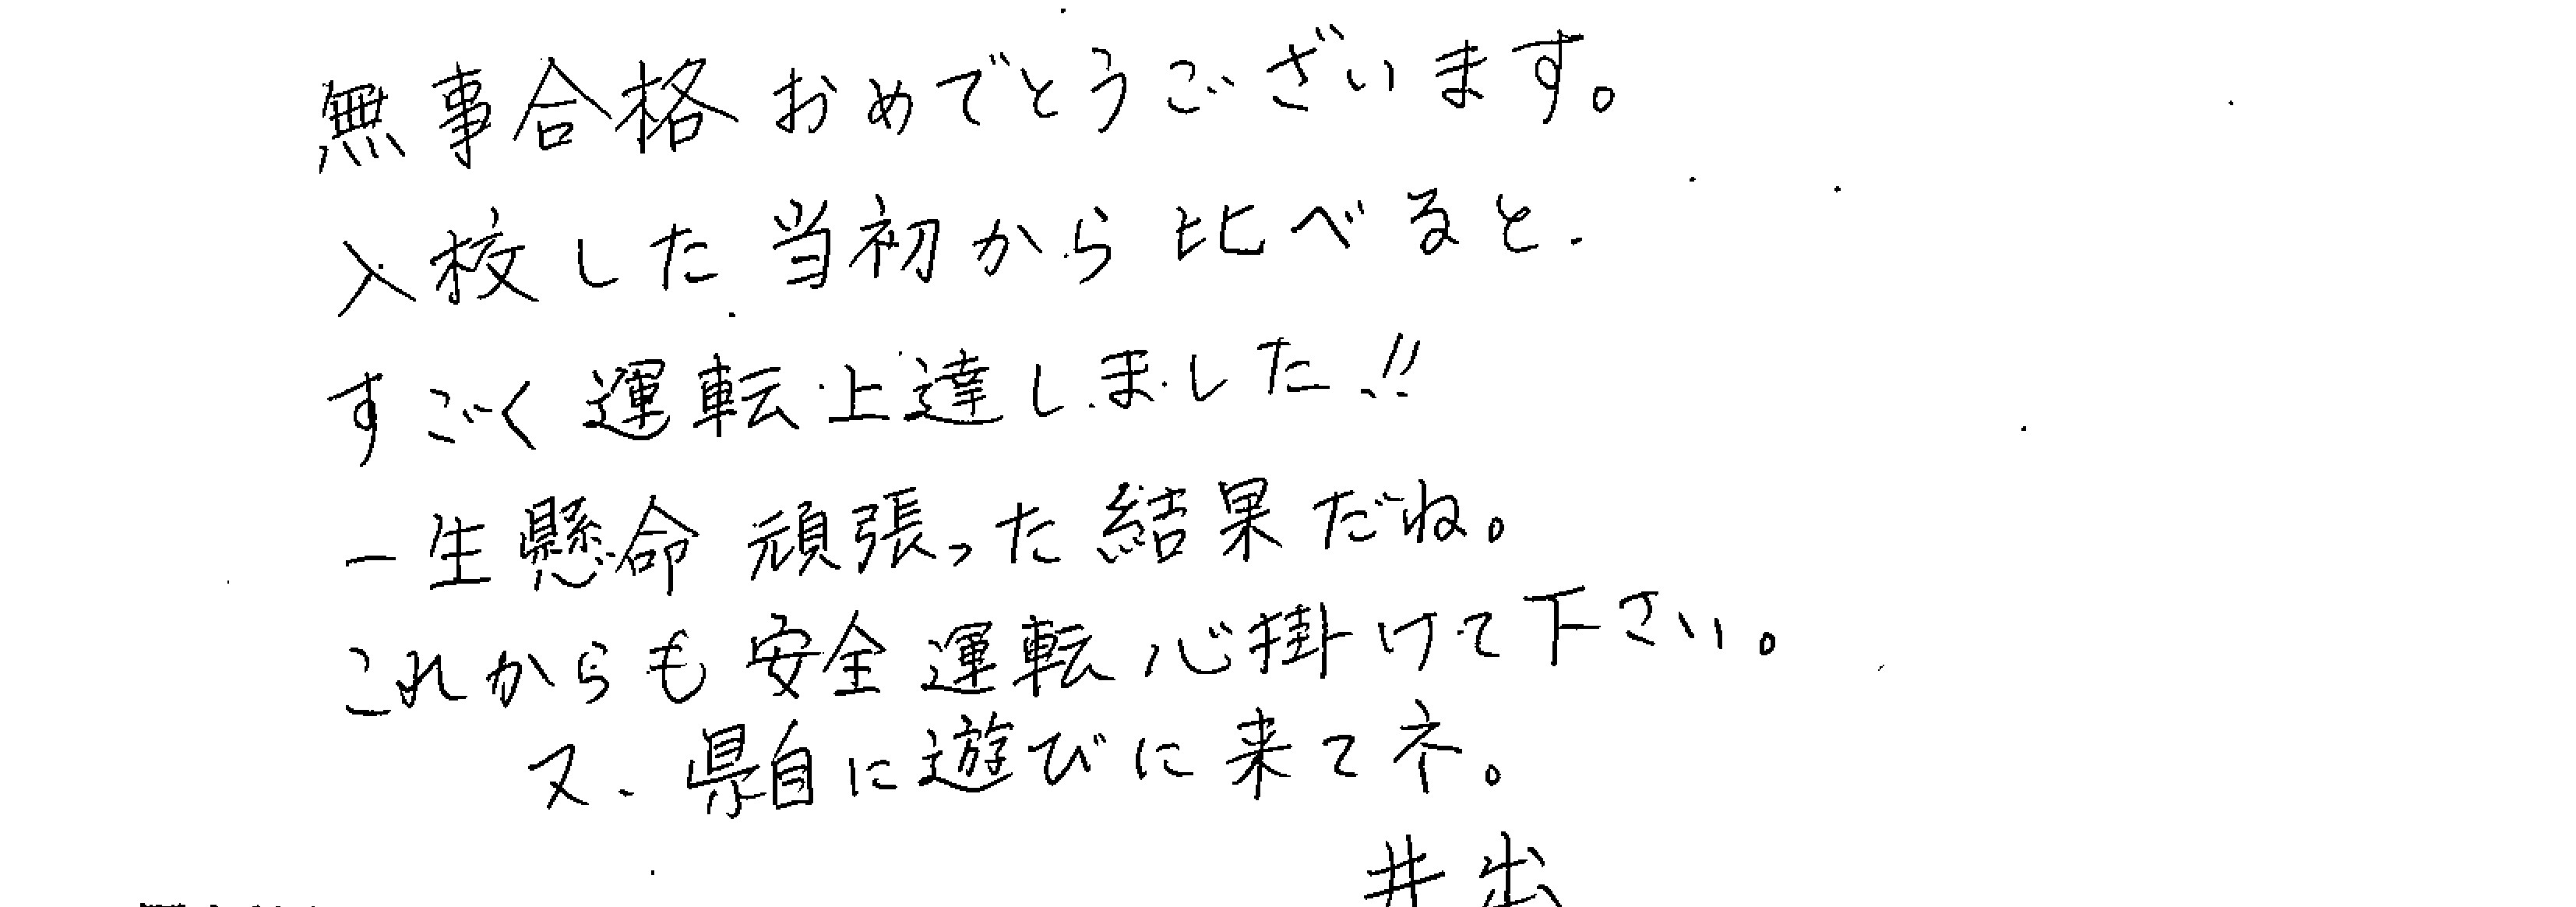 無事合格おめでとうございます。
入校した当初から比べると、
すごく運転上達しました!!
一生懸命頑張った結果だね。
これからも安全運転心掛けて下さい。
又、県自に遊びに来てネ。
井出